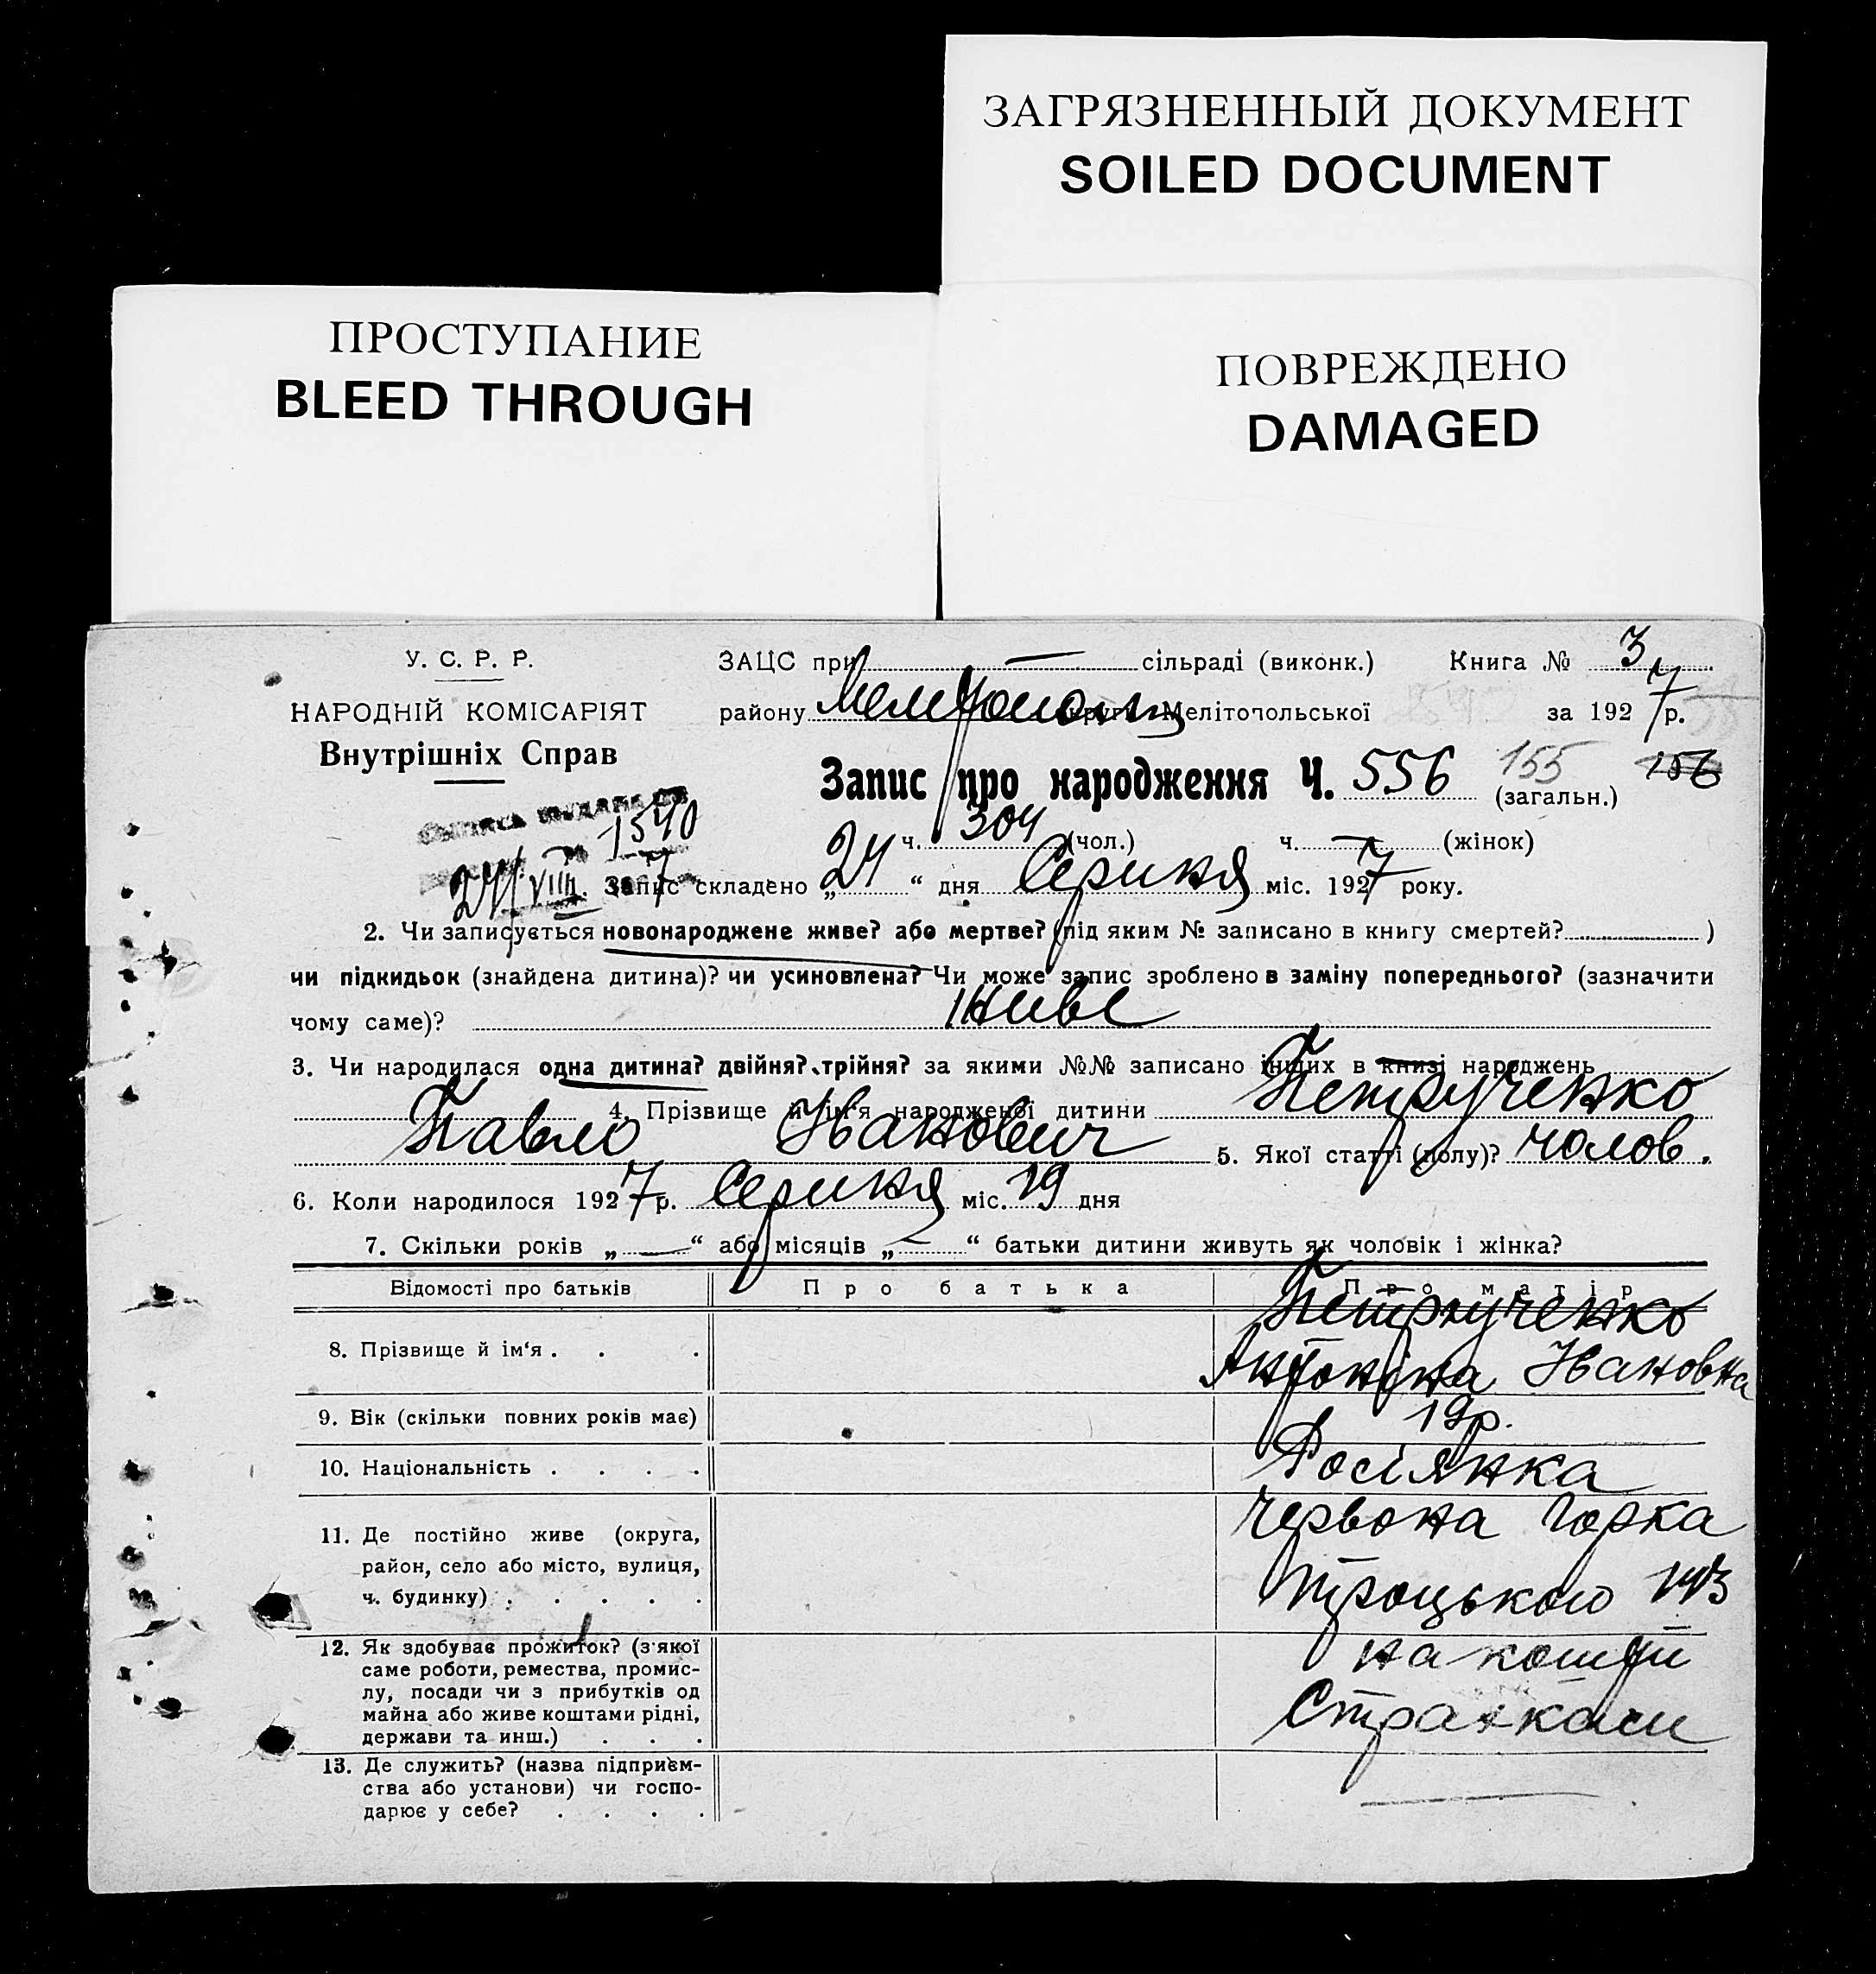 ЗАГРЯЗНЕННЫЙ ДОКУМЕНТ
SOILED DOCUMENT
ПРОСТУПАНИЕ
BLEED THROUGH
ПОВРЕЖДЕНО
DAMAGED
У. С. Р. Р.
НАРОДНІЙ КОМІСАРІЯТ
Внутрішніх Справ
ЗАЦС при — сільраді (виконк.) Книга № 3
району округи Мелітопольської за 1927 р.
Запис про народження Ч. 556 155 156
(загальн.)
1540
ч. 304 (чол.) ч. — (жінок)
24/VIII 7 Запис складено „24“ дня Серпня міс. 1927 року.
2. Чи записується новонароджене живе? або мертве? (під яким № записано в книгу смертей? )
чи підкидьок (знайдена дитина)? чи усиновлена? Чи може запис зроблено в заміну попереднього? (зазначити
чому саме)? живе
3. Чи народилася одна дитина? двійня? трійня? за якими №№ записано інших в книзі народжень
4. Прізвище й ім'я народженої дитини Петрученко
Павло Іванович 5. Якої статті (полу)? чолов.
6. Коли народилося 1927 р. Серпня міс. 19 дня
7. Скільки років „—“ або місяців „—“ батьки дитини живуть як чоловік і жінка?
Відомості про батьків Про батька Про матір
8. Прізвище й ім'я . . . Петрученко
Антоніна Івановна
9. Вік (скільки повних років має) 19р.
10. Національність . . . . Росіянка
11. Де постійно живе (округа,
район, село або місто, вулиця,
ч. будинку) . . . . .
Червона Горка
Троцького 143
12. Як здобуває прожиток? (з якої
саме роботи, ремества, промис-
лу, посади чи з прибутків од
майна або живе коштами рідні,
держави та инш.) . . .
на кошти
13. Де служить? (назва підприєм-
ства або установи) чи госпо-
дарює у себе? . . . .